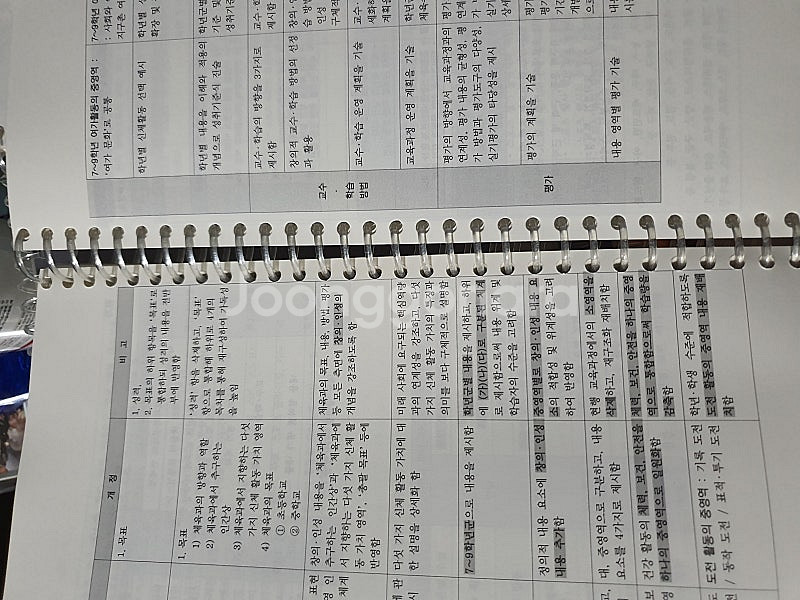 개 정
비 고
1. 목표
1. 성격,
2. 목표의 하위 항목을 '목표'로
통합하되 성격의 내용을 전반
부에 반영함
1. 목표
1) 체육과의 방향과 역할
2) 체육과에서 추구하는
인간상
3) 체육과에서 지향하는 다섯
가지 신체 활동 가치 영역
4) 체육과의 목표
① 초등학교
② 중학교
'성격' 항을 삭제하고, '목표'
항으로 통합해 하위로 4개의
목차를 통해 재구성하여 가독성
을 높임
창의·인성 내용을 '체육과에서
추구하는 인간상'과 '체육과에
서 지향하는 다섯 가지 신체 활
동 가치 영역', '총괄 목표' 등에
반영함
체육과의 목표, 내용, 방법, 평가
등 모든 측면에 창의·인성의
개념을 강조하도록 함
다섯 가지 신체 활동 가치에 대
한 설명을 상세화 함
미래 사회에 요구되는 핵심역량
과의 연계성을 강조하고, 다섯
가지 신체 활동 가치의 특징과
의미를 보다 구체적으로 설명함
7~9학년군으로 내용을 제시함
학년군별 내용을 제시하고, 하위
에 (가)(나)(다)로 구분된 체계
로 제시함으로써 내용 위계 및
학습자의 수준을 고려함
정의적 내용 요소에 창의·인성
내용 추가함
중영역별로 창의·인성 내용 요
소의 적합성 및 위계성을 고려
하여 반영함
대, 중영역으로 구분하고, 내용
요소를 4가지로 제시함
현행 교육과정에서의 소영역을
삭제하고, 재구조화 재배치함
건강 활동의 체력, 보건, 안전을
하나의 중영역으로 일원화함
체력, 보건, 안전을 하나의 중영
역으로 통합함으로써 학습량을
감축함
도전 활동의 중영역 : 기록 도전
/ 동작 도전 / 표적·투기 도전
학년·학생 수준에 적합하도록
도전 활동의 중영역 내용 재배
치함
7~9학년 여가활동의 중영역 :
'여가 문화'로 공통
학년별 신체활동 선택 예시
학년별 내용을 이해와 적용의
개념으로 성취기준식 진술
교수·학습 방법
교수·학습의 방향을 3가지로
제시함
창의적 교수·학습 방법의 선정
과 활용
교수·학습 운영 계획을 기술
교육과정 운영 계획을 기술
평가
평가의 방향에서 교육과정과의
연계성, 평가 내용의 균형성, 평
가 방법과 평가도구의 다양성,
실기평가의 타당성을 제시
평가의 계획을 기술
내용 영역별 평가 기술
Joongna